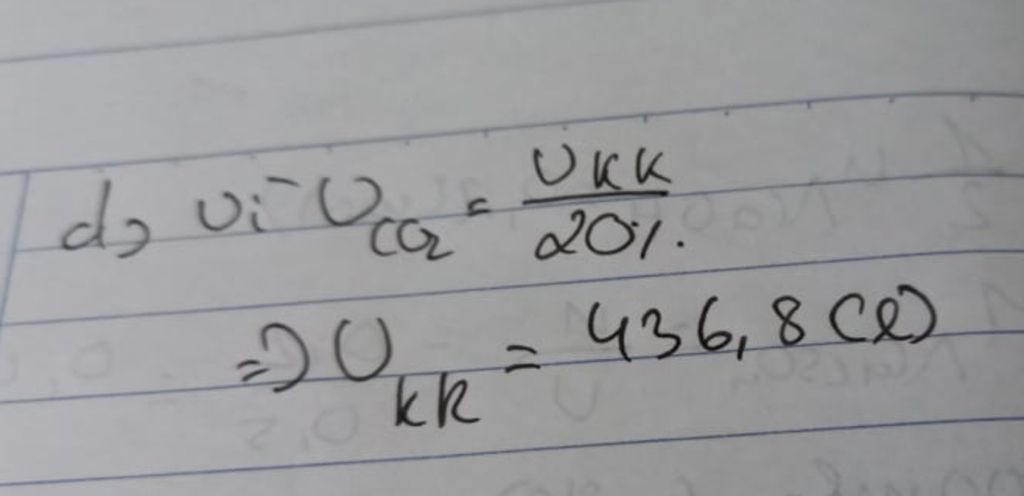 d, Vì V_CO2 = VKK / 20%.
=> V_KK = 436,8 (l)